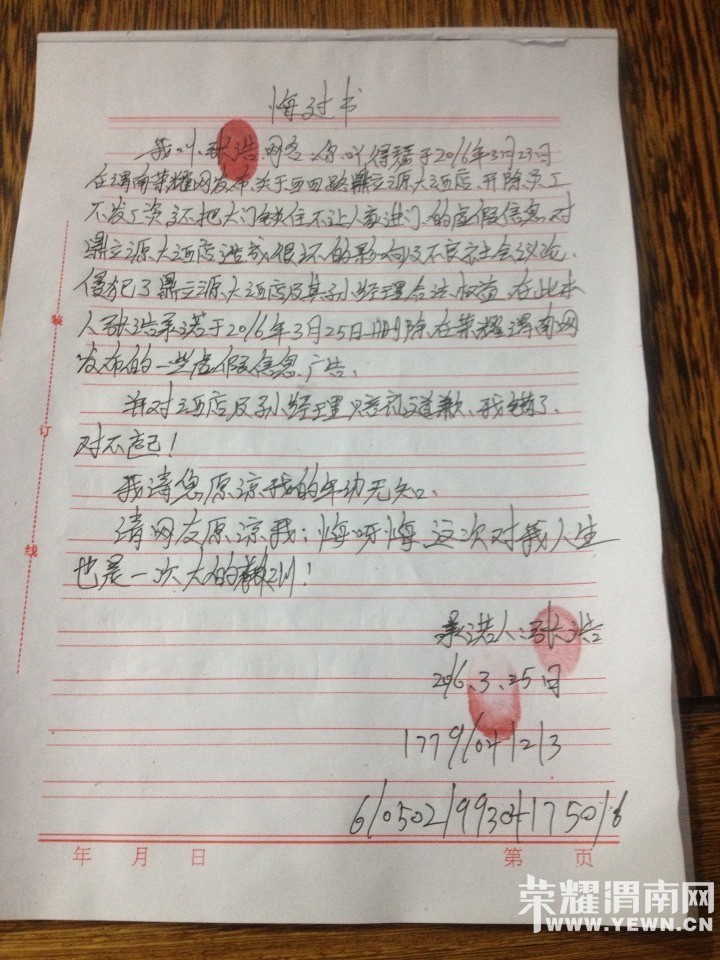 悔过书
我叫张浩,网名:你吖得瑟于2016年3月23日
在渭南荣耀网发布,关于西四路鼎立源大酒店,开除员工
不发工资,还把大门锁住不让人家进门,的虚假信息,对
鼎立源大酒店造成很坏的影响及不良社会议论,
侵犯了鼎立源大酒店及其孙经理合法权益,在此本
人张浩承诺于2016年3月25日删除在荣耀渭南网
发布的一些虚假信息,广告,
并对酒店及孙经理赔礼道歉,我错了,
对不起!
我请您原谅我的年幼无知.
请网友原谅我;悔呀悔这次对我人生
也是一次大的教训!
承诺人:张浩
2016.3.25日
17791041213
装
订
线
年 月 日
第 页
荣耀渭南网
WWW.YEWN.CN